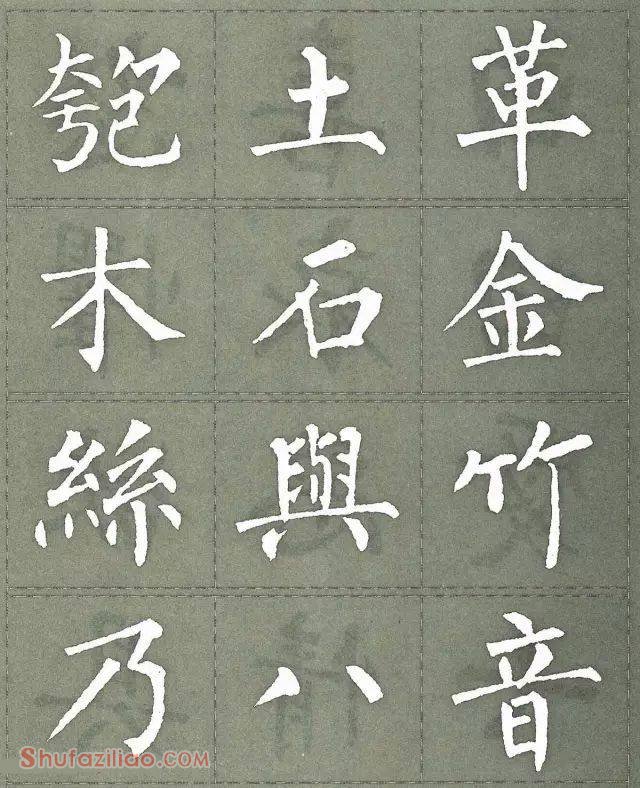 匏土革
木石金
絲與竹
乃八音
Shufaziliao.COM